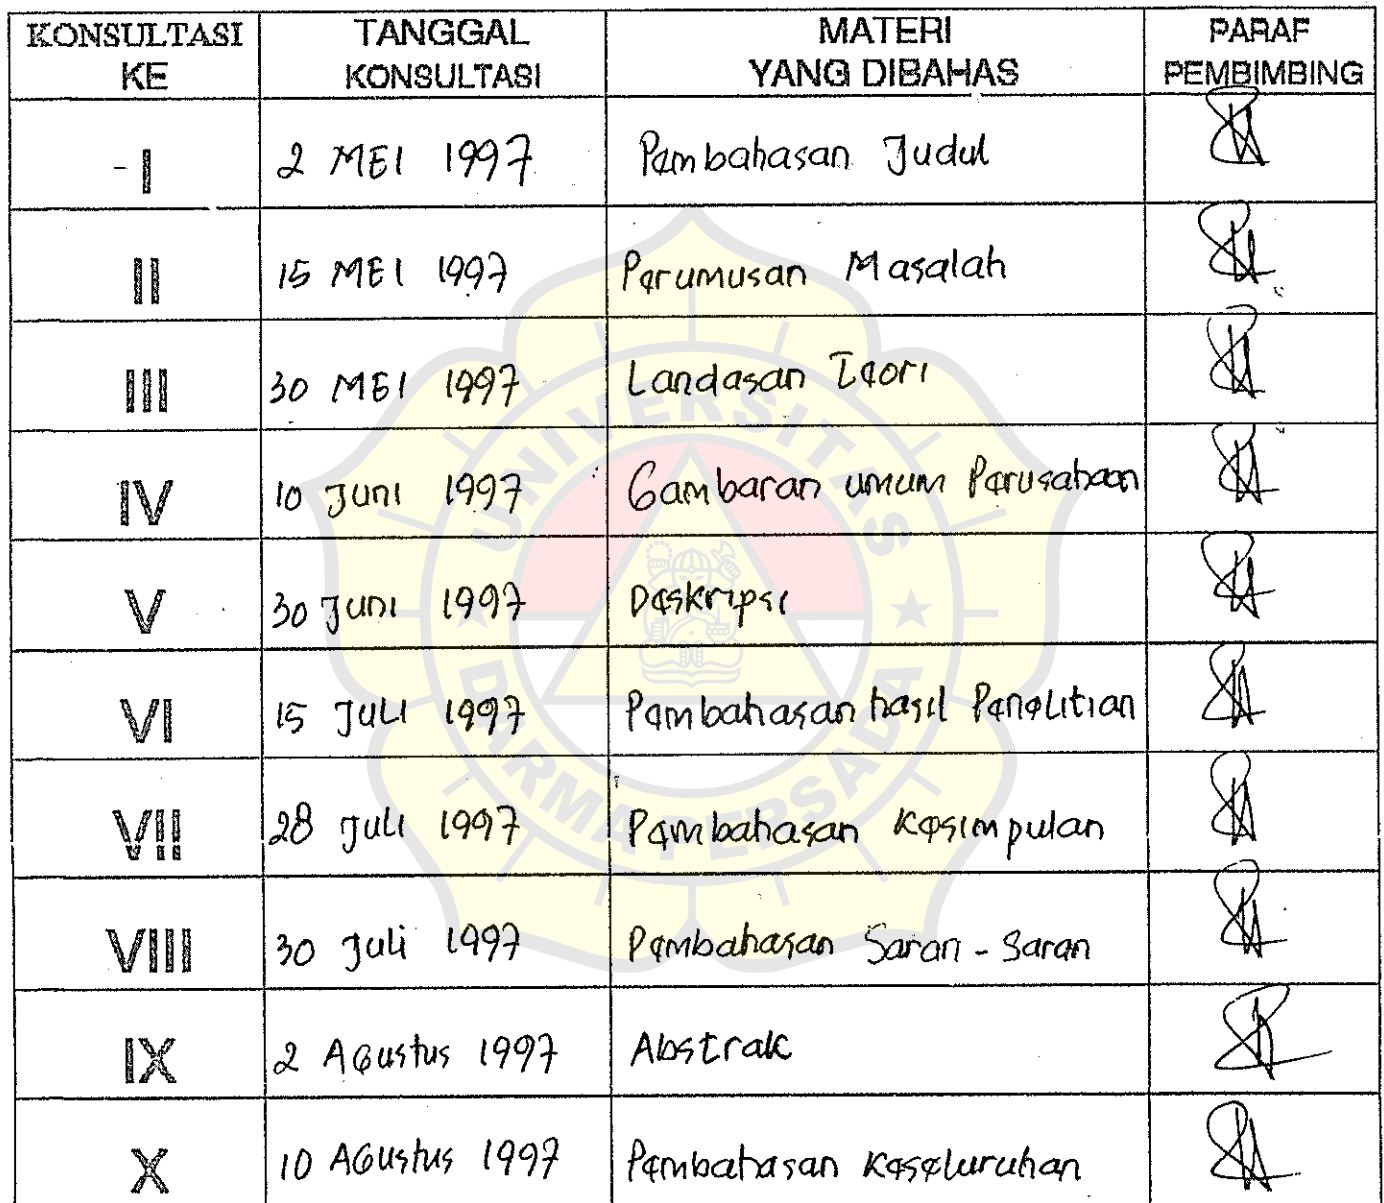 KONSULTASI KE
TANGGAL KONSULTASI
MATERI YANG DIBAHAS
PARAF PEMBIMBING
I 2 MEI 1997 Pembahasan Judul
II 15 MEI 1997 Perumusan Masalah
III 30 MEI 1997 Landasan Teori
IV 10 Juni 1997 Gambaran umum Perusahaan
V 30 Juni 1997 Deskripsi
VI 15 Juli 1997 Pembahasan hasil Penelitian
VII 28 Juli 1997 Pembahasan Kesimpulan
VIII 30 Juli 1997 Pembahasan Saran - Saran
IX 2 AGustus 1997 Abstrak
X 10 AGustus 1997 Pembahasan Keseluruhan
UNIVERSITAS
DARMA PERSADA